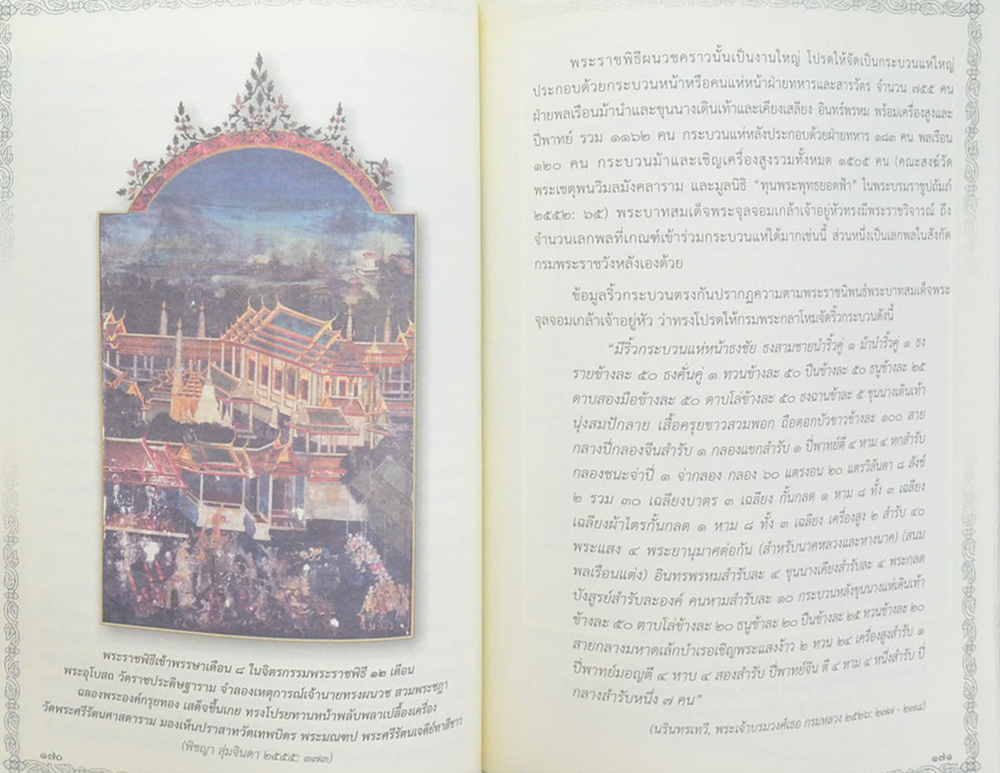 พระราชพิธีเข้าพรรษาเดือน ๘ ในจิตรกรรมพระราชพิธี ๑๒ เดือน
พระอุโบสถ วัดราชประดิษฐาราม จำลองเหตุการณ์เจ้านายทรงผนวช สวมพระชฎา
ฉลองพระองค์กรุยทอง เสด็จขึ้นเกย ทรงโปรยทานหน้าพลับพลาเปลื้องเครื่อง
วัดพระศรีรัตนศาสดาราม มองเห็นปราสาทวัดเทพบิดร พระมณฑป พระศรีรัตนเจดีย์ทาสีขาว
(พิชญา สุ่มจินดา ๒๕๕๕: ๑๗๓)
๑๗๐
พระราชพิธีผนวชคราวนั้นเป็นงานใหญ่ โปรดให้จัดเป็นกระบวนแห่ใหญ่
ประกอบด้วยกระบวนหน้าหรือคนแห่หน้าฝ่ายทหารและสารวัตร จำนวน ๗๕๕ คน
ฝ่ายพลเรือนม้านำและขุนนางเดินเท้าและเคียงเสลี่ยง อินทร์พรหม พร้อมเครื่องสูงและ
ปี่พาทย์ รวม ๑๑๖๒ คน กระบวนแห่หลังประกอบด้วยฝ่ายทหาร ๑๘๓ คน พลเรือน
๑๒๐ คน กระบวนม้าและเชิญเครื่องสูงรวมทั้งหมด ๑๕๐๕ คน (คณะสงฆ์วัด
พระเชตุพนวิมลมังคลาราม และมูลนิธิ “ทุนพระพุทธยอดฟ้า” ในพระบรมราชูปถัมภ์
๒๕๕๒: ๖๕) พระบาทสมเด็จพระจุลจอมเกล้าเจ้าอยู่หัวทรงมีพระราชวิจารณ์ ถึง
จำนวนเลกพลที่เกณฑ์เข้าร่วมกระบวนแห่ได้มากเช่นนี้ ส่วนหนึ่งเป็นเลกพลในสังกัด
กรมพระราชวังหลังเองด้วย
ข้อมูลริ้วกระบวนตรงกันปรากฏความตามพระราชนิพนธ์พระบาทสมเด็จพระ
จุลจอมเกล้าเจ้าอยู่หัว ว่าทรงโปรดให้กรมพระกลาโหมจัดริ้วกระบวนดังนี้
“มีริ้วกระบวนแห่หน้าธงชัย ธงสามชายนำริ้วคู่ ๑ ม้านำริ้วคู่ ๑ ธง
รายข้างละ ๕๐ ธงคั่นคู่ ๑ ทวนข้างละ ๕๐ ปืนข้างละ ๕๐ ธนูข้างละ ๒๕
ดาบสองมือข้างละ ๕๐ ดาบโล่ข้างละ ๕๐ ธงฉานข้างละ ๕ ขุนนางเดินเท้า
นุ่งสมปักลาย เสื้อครุยขาวสวมพอก ถือดอกบัวขาวข้างละ ๑๐๐ สาย
กลางปี่กลองจีนสำรับ ๑ กลองแขกสำรับ ๑ ปี่พาทย์ตี ๔ หาม ๔ หกสำรับ
กลองชนะจ่าปี่ ๑ จ่ากลอง กลอง ๖๐ แตรงอน ๒๐ แตรวิลันดา ๘ สังข์
๒ รวม ๓๐ เฉลียงบาตร ๓ เฉลียง กั้นกลด ๑ หาม ๘ ทั้ง ๓ เฉลียง
เฉลียงผ้าไตรกั้นกลด ๑ หาม ๘ ทั้ง ๓ เฉลียง เครื่องสูง ๒ สำรับ ๔๐
พระแสง ๔ พระยานุมาศต่อกัน (สำหรับนาคหลวงและหางนาค) (สนม
พลเรือนแต่ง) อินทรพรหมสำรับละ ๔ ขุนนางเคียงสำรับละ ๔ พระกลด
บังสูรย์สำรับละองค์ คนหามสำรับละ ๑๐ กระบวนหลังขุนนางแห่เดินเท้า
ข้างละ ๕๐ ดาบโล่ข้างละ ๒๐ ธนูข้างละ ๒๐ ปืนข้างละ ๒๕ ทวนข้างละ ๒๐
สายกลางมหาดเล็กบำเรอเชิญพระแสงง้าว ๒ ทวน ๒๔ เครื่องสูงสำรับ ๑
ปี่พาทย์มอญตี ๔ หาบ ๔ สองสำรับ ปี่พาทย์จีน ตี ๔ หาม ๔ หนึ่งสำรับ ปี่
กลางสำรับหนึ่ง ๗ คน”
(นรินทรเทวี, พระเจ้าบรมวงศ์เธอ กรมหลวง ๒๕๒๖: ๒๗๗ - ๒๗๔)
๑๗๑